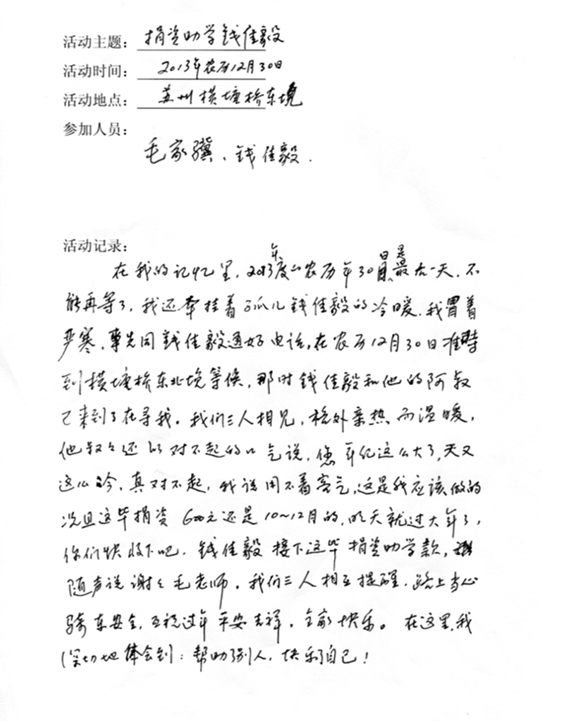 活动主题：捐资助学钱佳毅
活动时间：2013年农历12月30日
活动地点：苏州横塘桥东堍
参加人员：
毛家骥、钱佳毅.
活动记录：
在我的记忆里，2013年度的农历年30日是最后一天，不
能再等了，我还牵挂着孤儿钱佳毅的冷暖，我冒着
严寒，事先同钱佳毅通好电话，在农历12月30日准时
到横塘桥东北堍等候，那时钱佳毅和他的阿叔
已来到了在寻我。我们三人相见，格外亲热而温暖，
他叔叔还以对不起的口气说，您年纪这么大了，天又
这么冷，真对不起，我说用不着客气，这是我应该做的
况且这笔捐资600元还是10～12月的，明天就过大年了，
你们快收下吧。钱佳毅接下这笔捐资助学款，
随声说谢谢毛老师，我们三人相互提醒，路上当心
骑车安全，互祝过年平安吉祥，全家快乐。在这里，我
深切地体会到：帮助别人，快乐自己！